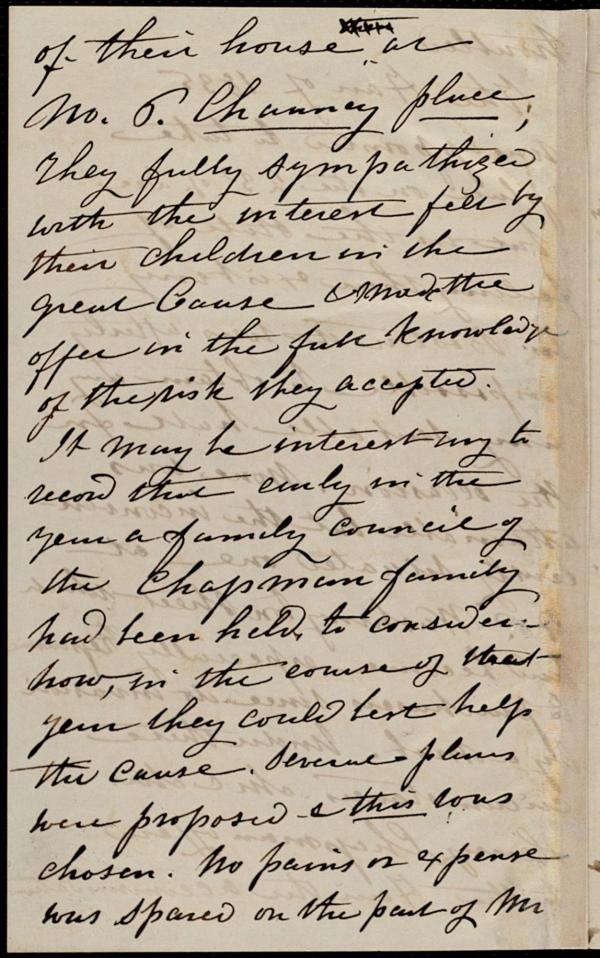 of their house at
No. 6. Chauncy place;
They fully sympathized
with the interest felt by
their children in the
great Cause & made the
offer in the full knowledge
of the risk they accepted.
It may be interesting to
record that early in the
year a family council of
the Chapman family
had been held, to consider
how, in the course of that
year they could best help
the cause. Several plans
were proposed & this was
chosen. No pains or expense
was spared on the part of Mr